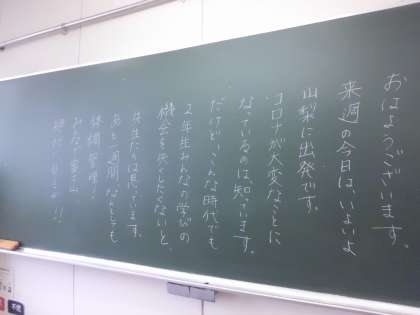 おはようございます。
来週の今日は、いよいよ
山梨に出発です。
コロナが大変なことに
なっているのは知っています。
だけど、こんな時代でも
2年生みんなの学びの
機会を失くしたくないと、
先生たちは思っています。
あと一週間、なんとしても
体調管理!
みんなで富士山